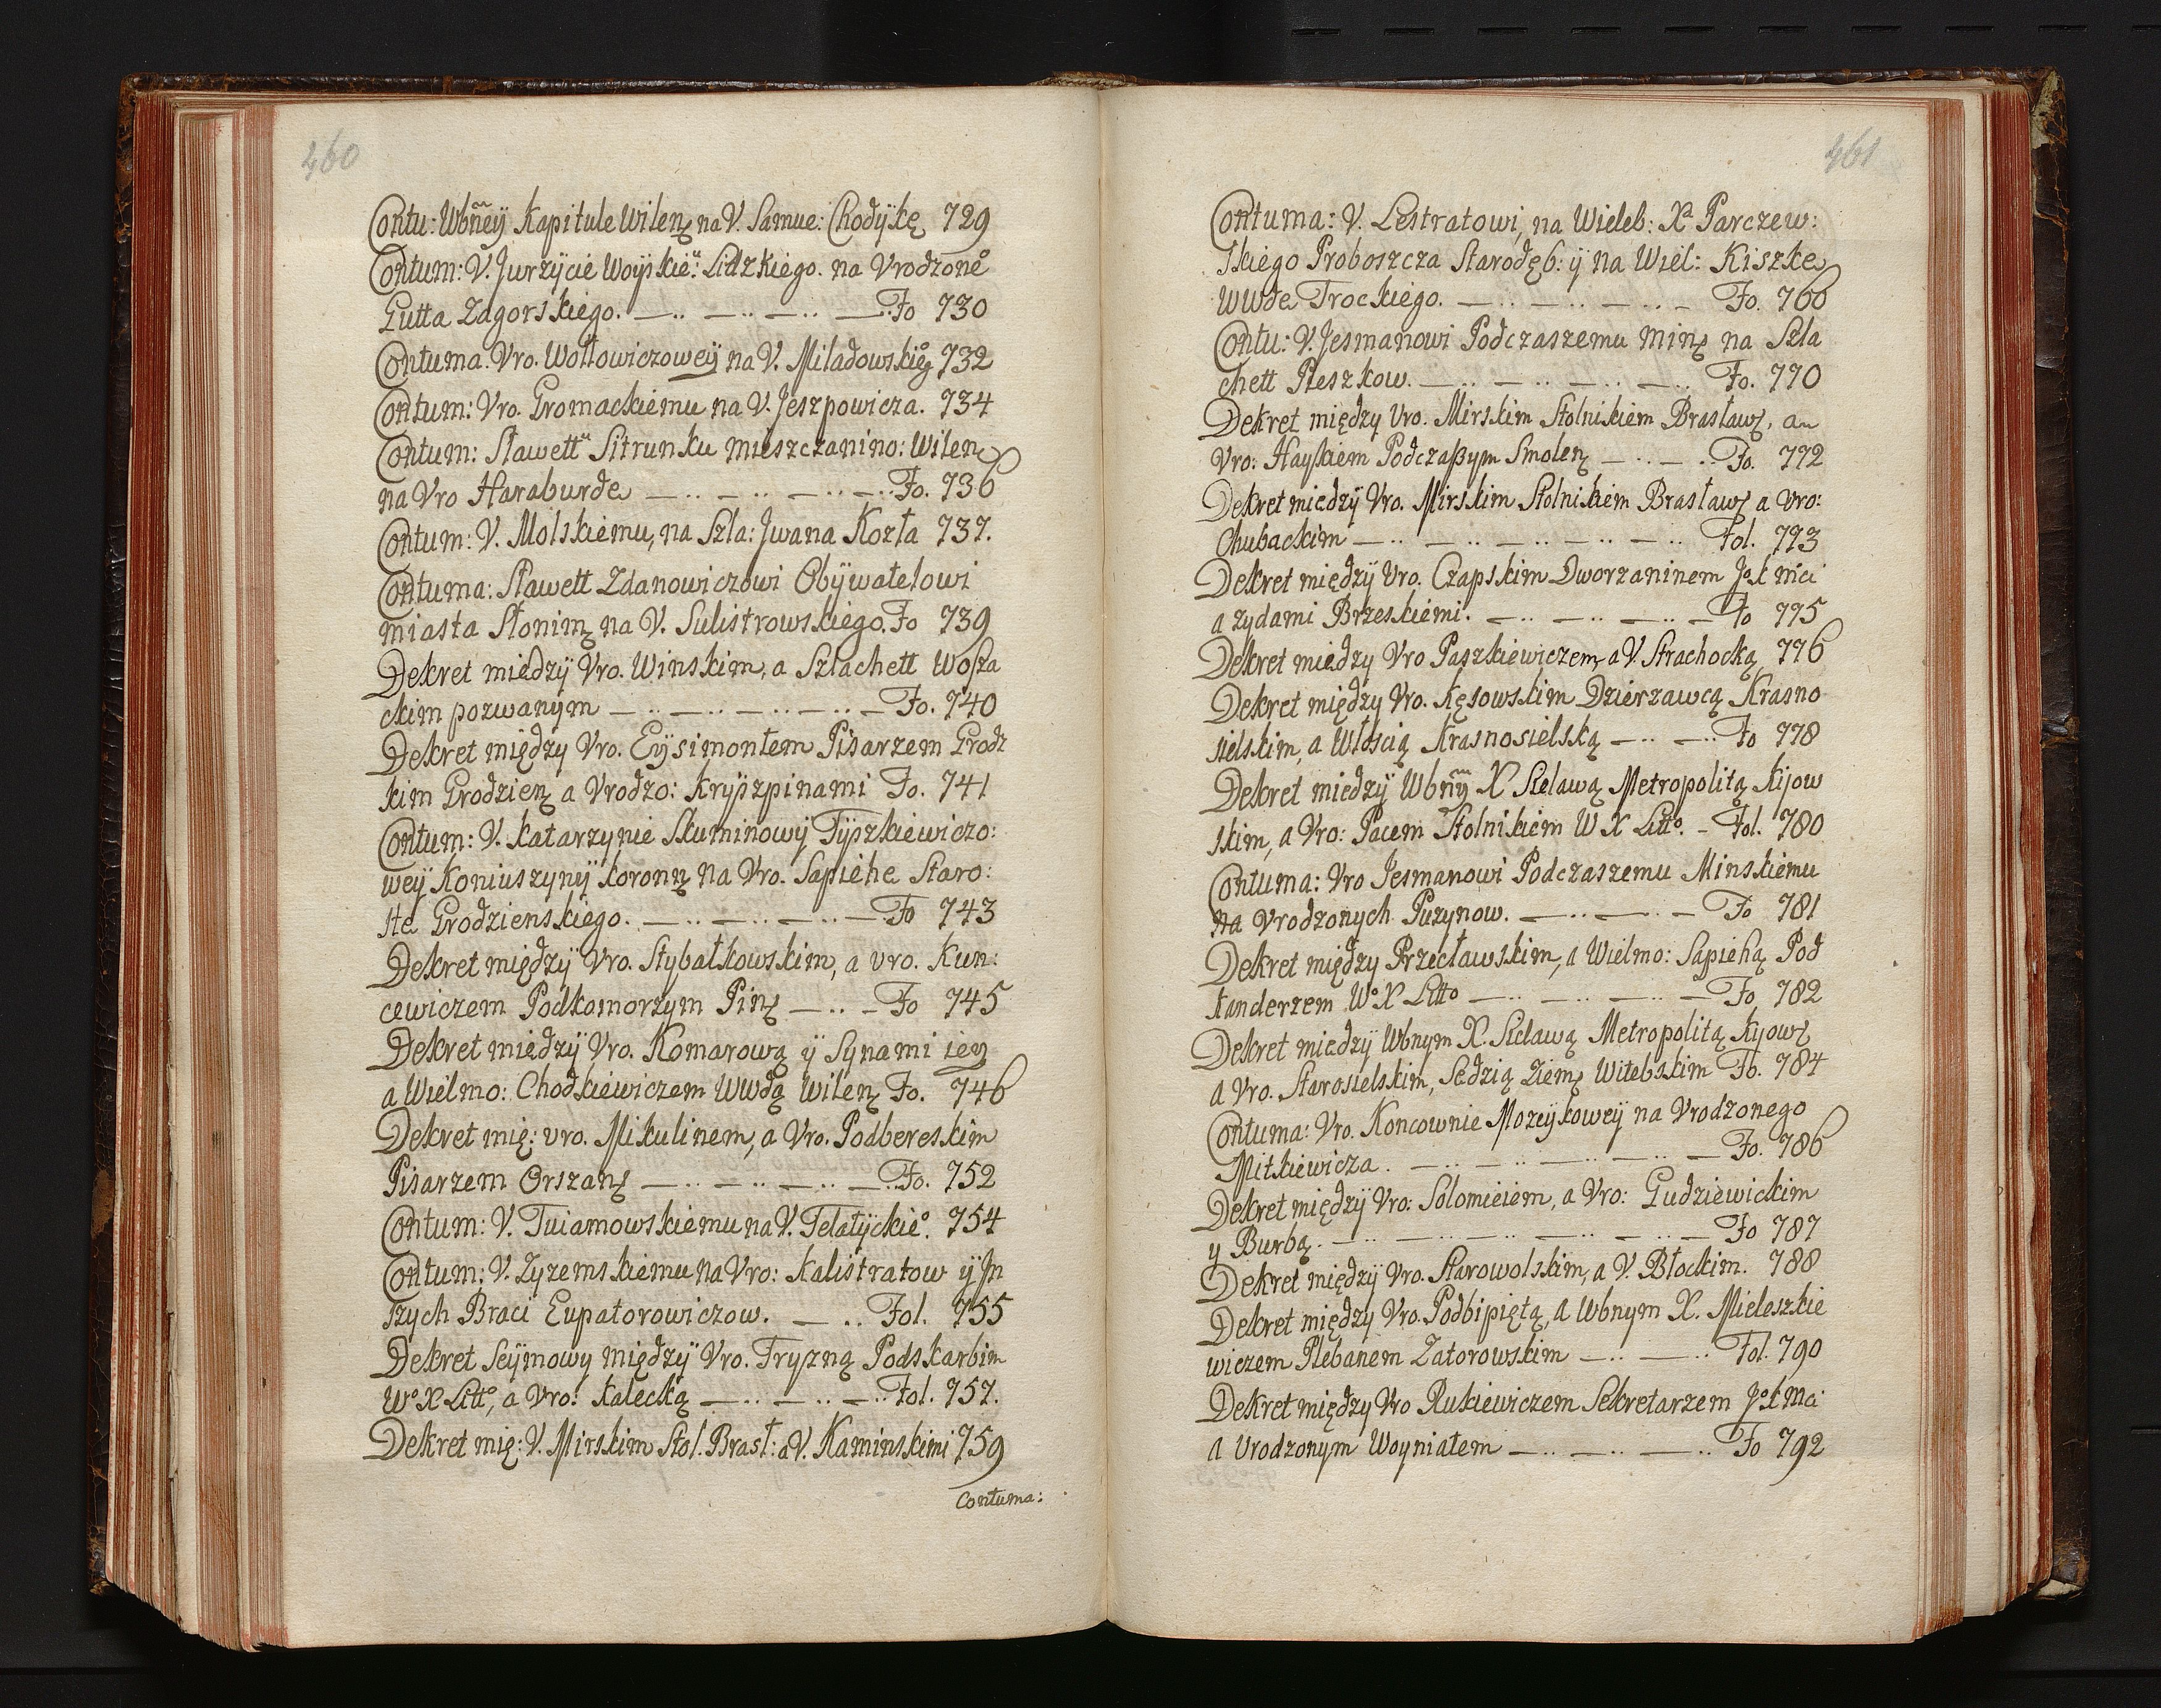 460
Contu: Wbñeÿ Kapitule Wilenȩ na V. Samue: Chodÿkę 729
Contum: V. Jurzÿcie Woÿskieᵘ: Lidzkiego. na Vrodzone°
Gutta Zagorskiego. — .. — .. — .. — .. Fo 730
Contuma. Vro. Wołłowiczoweÿ na V. Miladowskie° 732
Contum: Vro. Gromackiemu na V. Jeszpowicza. 734
Contum: Sławettᵘ Sitrunku Mieszczanino: Wilen
na Vro Haraburde — .. — .. — .. — .. Fo. 736
Contum: V. Molskiemu, na Szla: Jwana Kozła 737.
Contuma: Sławett Zdanowiczowi Obÿwatelowi
miasta Słonimȩ na V. Sulistrowskiego. Fo 739
Dekret miedzÿ Vro. Winskim, a Szlachett Wosza
ckim pozwanym — .. — .. — .. — .. — Fo. 740
Dekret między Vro. Eÿsimontem Pisarzem Grodz
kim Grodzienȩ a Vrodzo: Krÿszpinami Fo. 741
Contum: V. Katarzynie Skuminowÿ Tÿszkiewiczo:
weÿ Koniuszyneÿ koronnȩ na Vro. Sapiehe Staro:
ste Grodzienskiego. — .. — .. — .. — .. Fo 743
Dekret międzÿ Vro. Stybałkowskim, a vro. Kun:
cewiczem Podkomorzym Pinȩ — .. — Fo 745
Dekret międzÿ Vro. Komarową ÿ Synami iey
a Wielmo: Chodkiewiczem Wwdą Wilenȩ Fo. 746
Dekret mię: vro. Mikulinem, a Vro. Podbereskim
Pisarzem Orszanȩ — .. — .. — .. — .. Fo. 752
Contum: V. Tuiamowskiemu na V. Telatÿckie°. 754
Contum: V. Zyzemskiemu na Vro: Kalistratow ÿ Jn
szych Braci Eupatorowiczow. — .. Fol. 755
Dekret Seÿmowy międzÿ Vro. Tryzną Podskarbim
W° X Litt°, a Vro: Kalecką — .. — .. — .. Fol. 757.
Dekret mię: V. Mirskim Stol. Brasł: a V. Kaminskimi 759
Contuma:
461
Contuma: V. Lestratowi, na Wieleb: Xª Parczew:
skiego Proboszcza Starodęb: ÿ na Wiel: Kiszke
wwde Trockiego. — .. — .. — .. — Fo. 760
Contu: V. Jesmanowi Podczaszemu Minȩ na Szla
chett Pieszkow. — .. — .. — .. — .. Fo. 770
Dekret między Vro. Mirskim Stolnikiem Brasławȩ, a
Vro: Hayskiem Podczaßym Smolenȩ — .. — .. Fo. 772
Dekret miedzÿ Vro. Mirskim Stolnikiem Brasławȩ a Vro:
Chubackim — .. — .. — .. — .. — .. Fol. 773
Dekret międzÿ Vro. Czapskim Dworzaninem J°k mći
a zydami Brzeskiemi. — .. — .. — .. — Fo 775
Dekret między Vro Paszkiewiczem a V. Strachocką 776
Dekret między Vro. Kęsowskim Dzierzawcą Krasno
sielskim, a Włoscią Krasnosielską — .. — .. Fo 778
Dekret miedzÿ Wbñÿ X Sielawą Metropolitą Kijow
skim, a Vro: Pacem Stolnikiem W X Litt°. – Fol. 780
Contuma: Vro Jesmanowi Podczaszemu Minskiemu
na Vrodzonych Puzynow. — .. — .. — Fo 781
Dekret między Przecławskim, a Wielmo: Sapiehą Pod
kanclerzem W° X Litt° — .. — .. — .. — Fo 782
Dekret miedzÿ Wbnym X. Sielawą Metropolitą Kyowȩ
a Vro. Starosielskim, Sędzią Ziemȩ Witebskim Fo. 784
Contuma: Vro. Koncownie Mozeÿkoweÿ na Vrodzonego
Mitkiewicza. — .. — .. — .. — .. — Fo. 786
Dekret międzÿ Vro: Solomieiem, a Vro: Gudziewickim
y Burbą. — .. — .. — .. — .. — .. — Fo 787
Dekret międzÿ Vro. Starowolskim, a V. Błockim. 788
Dekret między Vro. Podbipiętą, a Wbnym X. Mieleszkie
wiczem Plebanem Zatorowskim — .. — .. Fol. 790
Dekret między Vro Rukiewiczem Sekretarzem J°k mci
a Vrodzonym Woyniałem — .. — .. — .. Fo 792